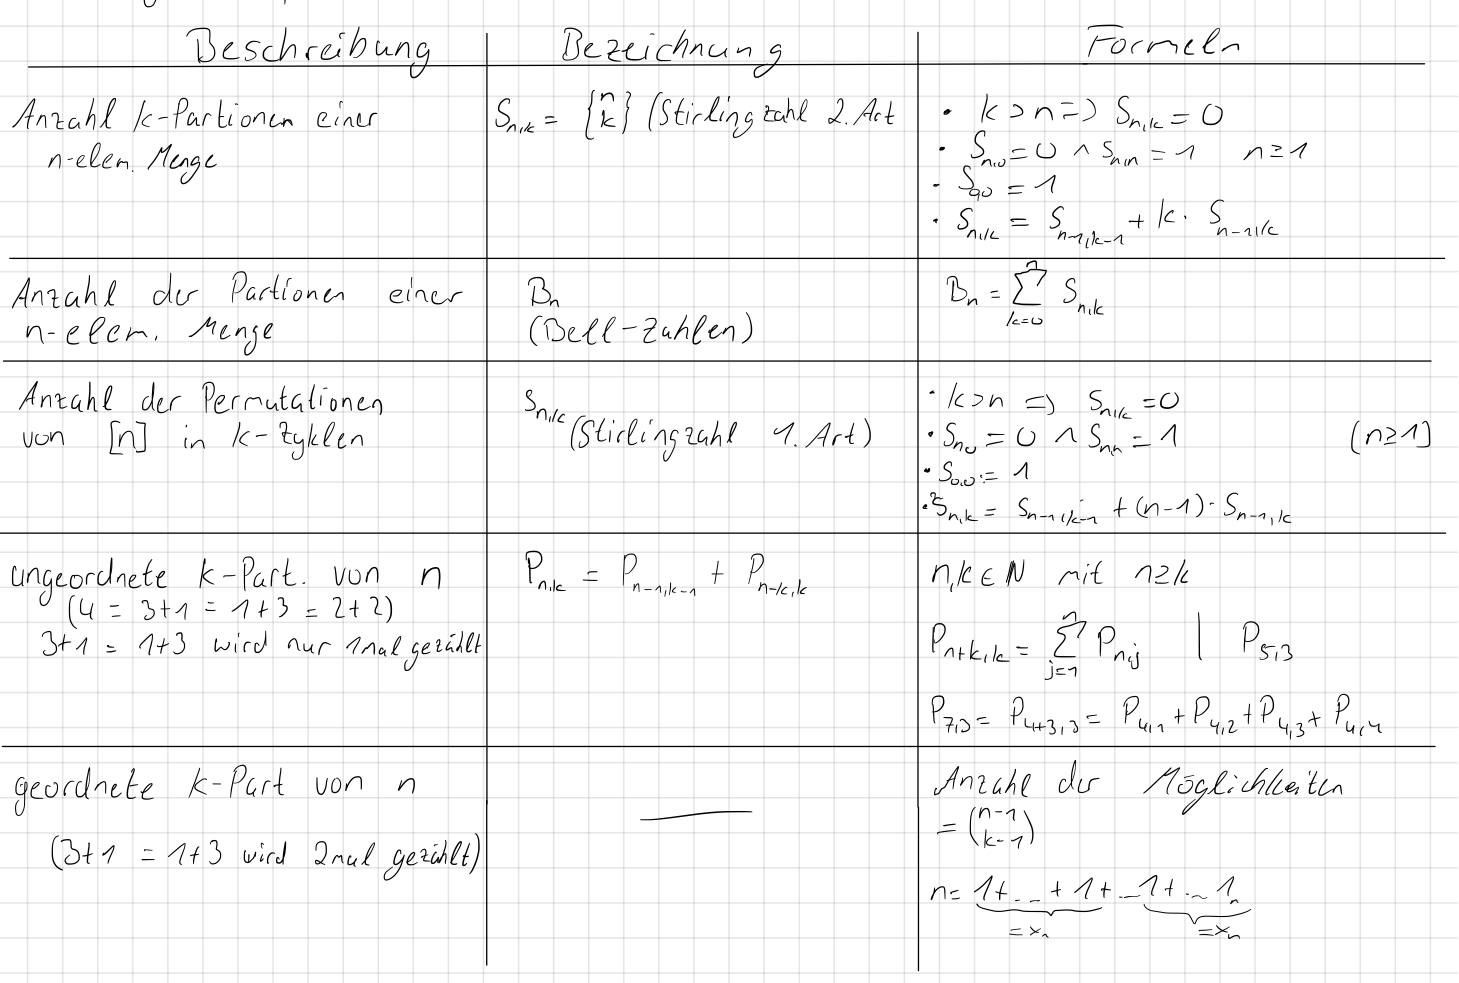 Beschreibung Bezeichnung Formeln
Anzahl k-Partionen einer
n-elem. Menge
S_{n,k} = {n k} (Stirlingzahl 2. Art
• k > n => S_{n,k} = 0
• S_{n,0} = 0 ∧ S_{n,n} = 1 n ≥ 1
• S_{0,0} = 1
• S_{n,k} = S_{n-1,k-1} + k · S_{n-1,k}
Anzahl der Partionen einer
n-elem. Menge
B_n
(Bell-Zahlen)
B_n = ∑_{k=0}^{n} S_{n,k}
Anzahl der Permutationen
von [n] in k-Zyklen
s_{n,k} (Stirlingzahl 1. Art)
• k > n => s_{n,k} = 0
• s_{n,0} = 0 ∧ s_{n,n} = 1 (n ≥ 1)
• s_{0,0} := 1
• s_{n,k} = s_{n-1,k-1} + (n-1) · s_{n-1,k}
ungeordnete k-Part. von n
(4 = 3+1 = 1+3 = 2+2)
3+1 = 1+3 wird nur 1mal gezählt
P_{n,k} = P_{n-1,k-1} + P_{n-k,k}
n,k ∈ N mit n ≥ k
P_{n+k,k} = ∑_{j=1}^{n} P_{n,j} | P_{5,3}
P_{7,3} = P_{4+3,3} = P_{4,1} + P_{4,2} + P_{4,3} + P_{4,4}
geordnete k-Part von n
(3+1 = 1+3 wird 2mal gezählt)
Anzahl der Möglichkeiten
= (n-1 k-1)
n = 1+... + 1+...1+...1
= x_1 = x_n